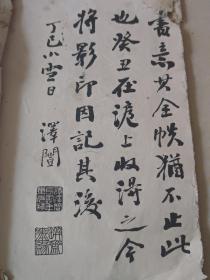 書亦其全帙猶不止此
也癸丑在滬上收得之今
將影印因記其後
丁巳小雪日
澤闓